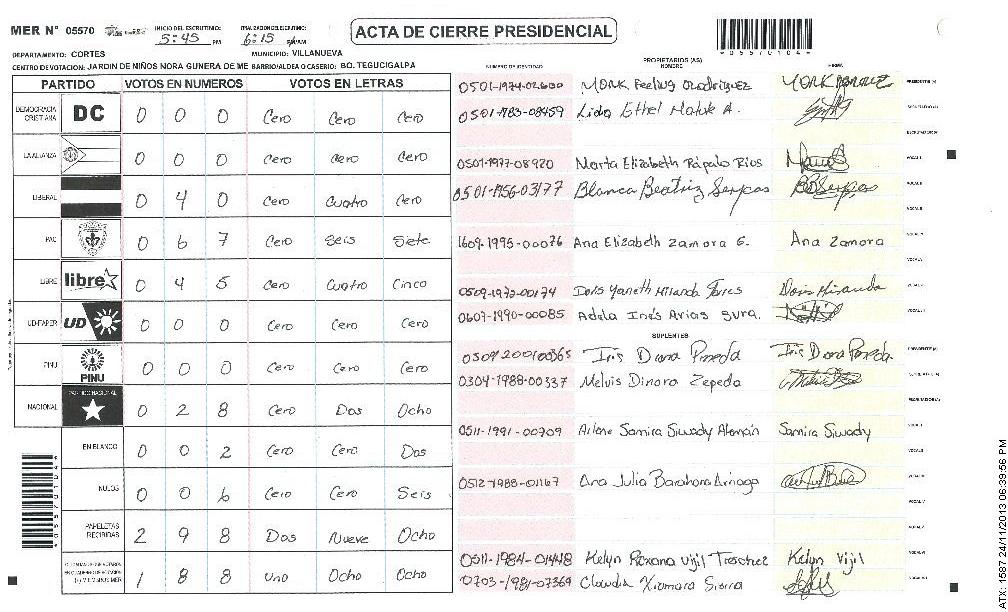 MER Nº 05570
INICIO DEL ESCRUTINIO: 5:45 PM
FINALIZACION ESCRUTINIO: 6:15
ACTA DE CIERRE PRESIDENCIAL
DEPARTAMENTO: CORTES MUNICIPIO: VILLANUEVA
CENTRO DE VOTACION: JARDIN DE NIÑOS NORA GUNERA DE ME BARRIO/ALDEA O CASERIO: BO. TEGUCIGALPA
PARTIDO VOTOS EN NUMEROS VOTOS EN LETRAS
DEMOCRACIA CRISTIANA DC 0 0 0 Cero Cero Cero
LA ALIANZA 0 0 0 Cero Cero Cero
LIBERAL 0 4 0 Cero Cuatro Cero
PAC 0 6 7 Cero Seis Siete
LIBRE libre 0 4 5 Cero Cuatro Cinco
UD-FAPER UD 0 0 0 Cero Cero Cero
PINU PINU 0 0 0 Cero Cero Cero
NACIONAL PARTIDO NACIONAL 0 2 8 Cero Dos Ocho
EN BLANCO 0 0 2 Cero Cero Dos
NULOS 0 0 6 Cero Cero Seis
PAPELETAS RECIBIDAS 2 9 8 Dos Nueve Ocho
1 8 8 Uno Ocho Ocho
NUMERO DE IDENTIDAD PROPIETARIOS (AS) NOMBRE FIRMA
0501-1974-02600 PRESIDENTE (A)
0501-1983-08459 Lidia Ethel Matute A.
0501-1977-08920 Marta Elizabeth Rápalo Rios
0501-1956-03177 Blanca Beatriz Serpas
1609-1995-00076 Ana Elizabeth Zamora G. Ana Zamora
0509-1972-00174 Doris Yaneth Miranda Torres Doris Miranda
0607-1990-00085 Adela Inés Arias
SUPLENTES
Iris Diana Pineda Iris Diana Pineda
0304-1988-00337 Melvis Dinora Zepeda
0511-1991-00709 Arlene Samira Siwady Alemán Samira Siwady
0512-1988-01167 Ana Julia Barahona
0511-1984-01448 Kelyn Roxana Vijil Kelyn Vijil
0703-1981-07369 Claudia Xiomara Sierra
ATX: 1587 24/11/2013 06:39:56 PM